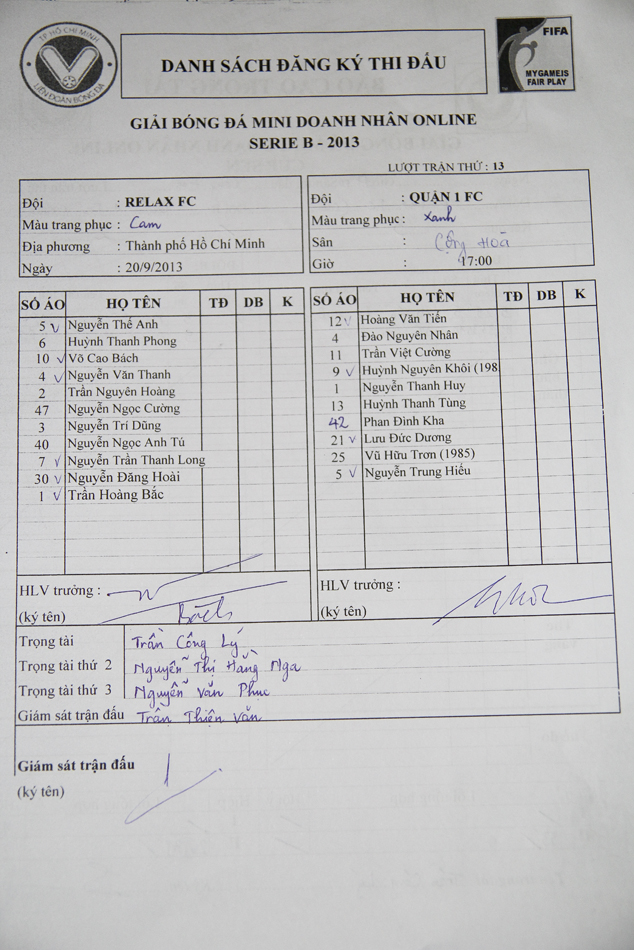 TP HỒ CHÍ MINH
LIÊN ĐOÀN BÓNG ĐÁ
DANH SÁCH ĐĂNG KÝ THI ĐẤU
FIFA
MY GAME IS
FAIR PLAY
GIẢI BÓNG ĐÁ MINI DOANH NHÂN ONLINE
SERIE B - 2013
LƯỢT TRẬN THỨ : 13
Đội : RELAX FC
Màu trang phục : Cam
Địa phương : Thành phố Hồ Chí Minh
Ngày : 20/9/2013
Đội : QUẬN 1 FC
Màu trang phục : Xanh
Sân : Cộng Hoà
Giờ : 17:00
SỐ ÁO HỌ TÊN TĐ DB K
5 v Nguyễn Thế Anh
6 Huỳnh Thanh Phong
10 v Võ Cao Bách
4 v Nguyễn Văn Thanh
2 Trần Nguyên Hoàng
47 Nguyễn Ngọc Cường
3 Nguyễn Trí Dũng
40 Nguyễn Ngọc Anh Tú
7 v Nguyễn Trần Thanh Long
30 v Nguyễn Đăng Hoài
1 v Trần Hoàng Bắc
SỐ ÁO HỌ TÊN TĐ DB K
12 v Hoàng Văn Tiến
4 Đào Nguyên Nhân
11 Trần Việt Cường
9 v Huỳnh Nguyên Khôi (198
1 Nguyễn Thanh Huy
13 Huỳnh Thanh Tùng
42 Phan Đình Kha
21 v Lưu Đức Dương
25 Vũ Hữu Trơn (1985)
5 v Nguyễn Trung Hiếu
HLV trưởng :
(ký tên) Bách
HLV trưởng :
(ký tên)
Trọng tài Trần Công Lý
Trọng tài thứ 2 Nguyễn Thị Hằng Nga
Trọng tài thứ 3 Nguyễn Văn Phục
Giám sát trận đấu Trần Thiện Văn
Giám sát trận đấu
(ký tên)